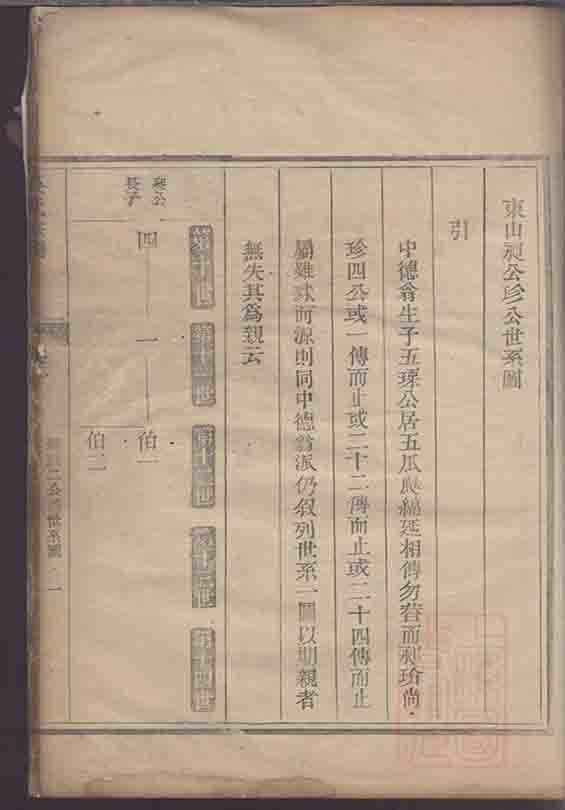 東山昶公珍公世系圖
引
中德翁生子五㻍公居五瓜瓞綿延相傳勿替而昶珍尚
珍四公或一傳而止或二十二傳而止或二十四傳而止
屬雖殊而源則同中德翁派仍叙列世系一圖以期親者
無失其為親云
第十世
第十一世
第十二世
第十三世
第十四世
昶公
長子
四
一
伯一
伯二
二公世系圖
一